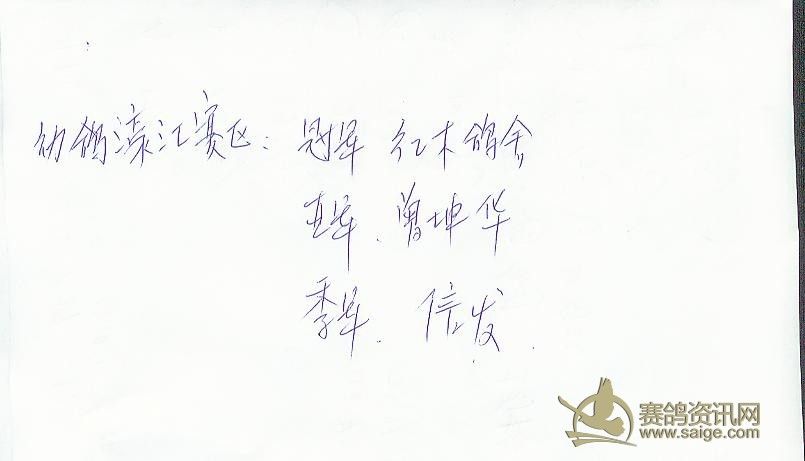 幼鸽濠江赛区：冠军 红木鸽舍
亚军．曾坤华
季军．信发．
赛鸽资讯网
www.saige.com